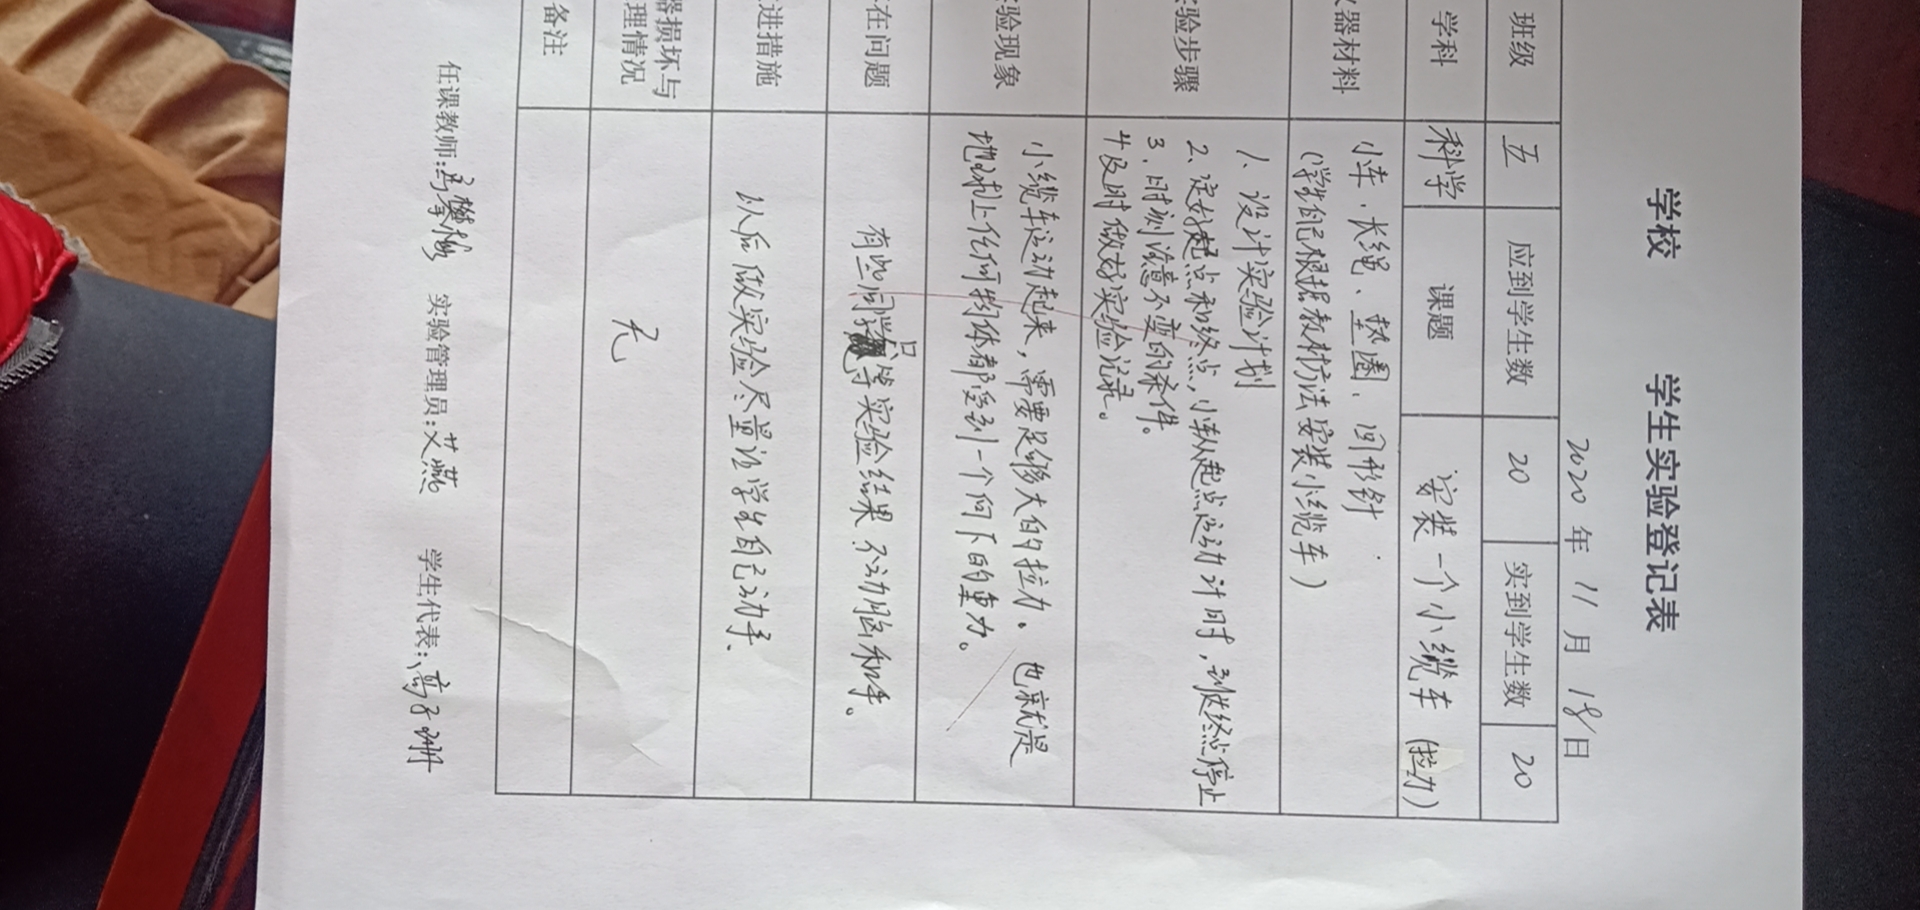 学校 学生实验登记表
2020年11月18日
班级 五 应到学生数 20 实到学生数 20
学科 科学 课题 安装一个小缆车(拉力)
器材料 小车、长绳、垫圈、回形针.
(学生自己根据教材方法安装小缆车)
验步骤 1、设计实验计划
2、定好起点和终点,小车从起点运动计时,到终点停止
3、时刻注意不变的条件。
4及时做好实验记录。
验现象 小缆车运动起来,需要足够大的拉力。也就是
地球上任何物体都受到一个向下的重力。
在问题 有些同学只等实验结果不动脑和手。
进措施 以后做实验尽量让学生自己动手、
器损坏与
理情况 无
备注
任课教师: 实验管理员:艾燕 学生代表:高子珊